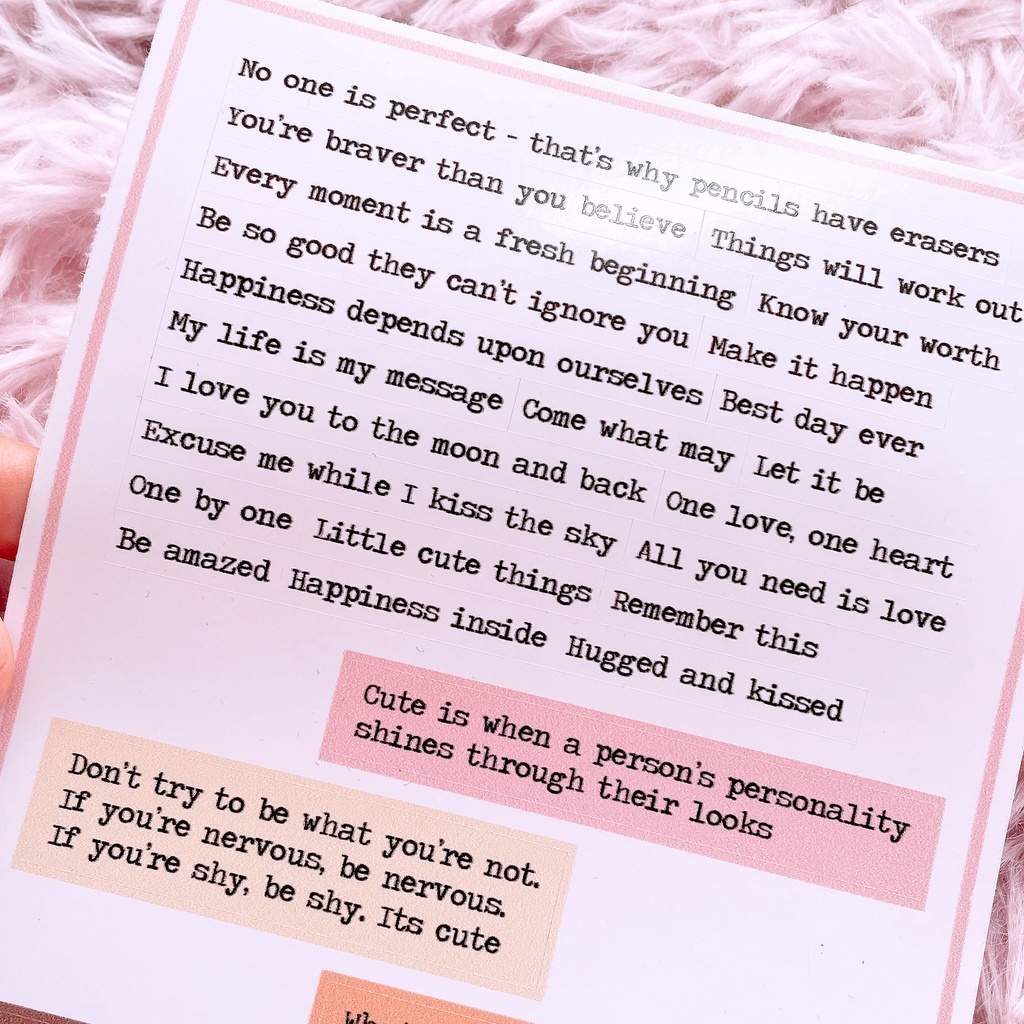 No one is perfect - that's why pencils have erasers
You're braver than you believe Things will work out
Every moment is a fresh beginning Know your worth
Be so good they can't ignore you Make it happen
Happiness depends upon ourselves Best day ever
My life is my message Come what may Let it be
I love you to the moon and back One love, one heart
Excuse me while I kiss the sky All you need is love
One by one Little cute things Remember this
Be amazed Happiness inside Hugged and kissed
Cute is when a person's personality
shines through their looks
Don't try to be what you're not.
If you're nervous, be nervous.
If you're shy, be shy. Its cute